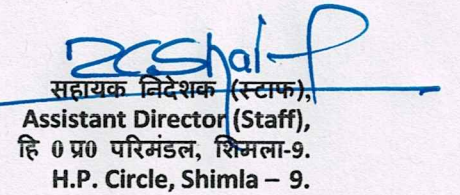 सहायक निदेशक (स्टाफ),
Assistant Director (Staff),
हि 0 प्र0 परिमंडल, शिमला-9.
H.P. Circle, Shimla – 9.